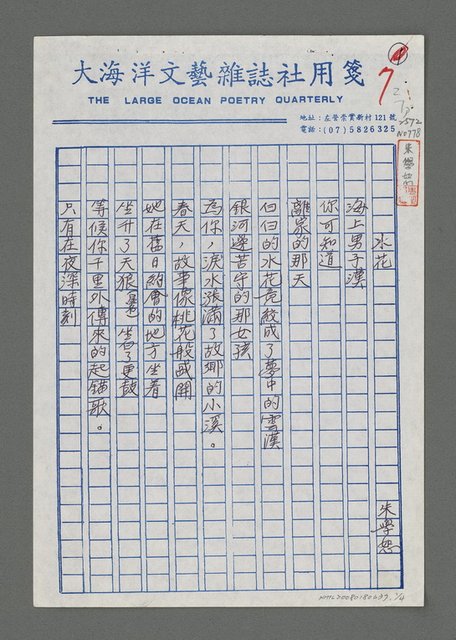 大海洋文藝雜誌社用箋
THE LARGE OCEAN POETRY QUARTERLY
地址：左營崇實新村121號
電話：(07)5826325
7
2572
NO778
朱學恕
水花
朱學恕
海上男子漢
你可知道
離家的那天
白白的水花竟餃成了夢中的雲漢
銀河邊苦守的那女孩
為你，淚水漲滿了故鄉的小溪。
春天，故事像桃花般盛開
她在舊日約會的地方坐著
坐升了天狼星，坐啞了更鼓
等候你千里外傳來的起錨歌。
只有在夜深時刻